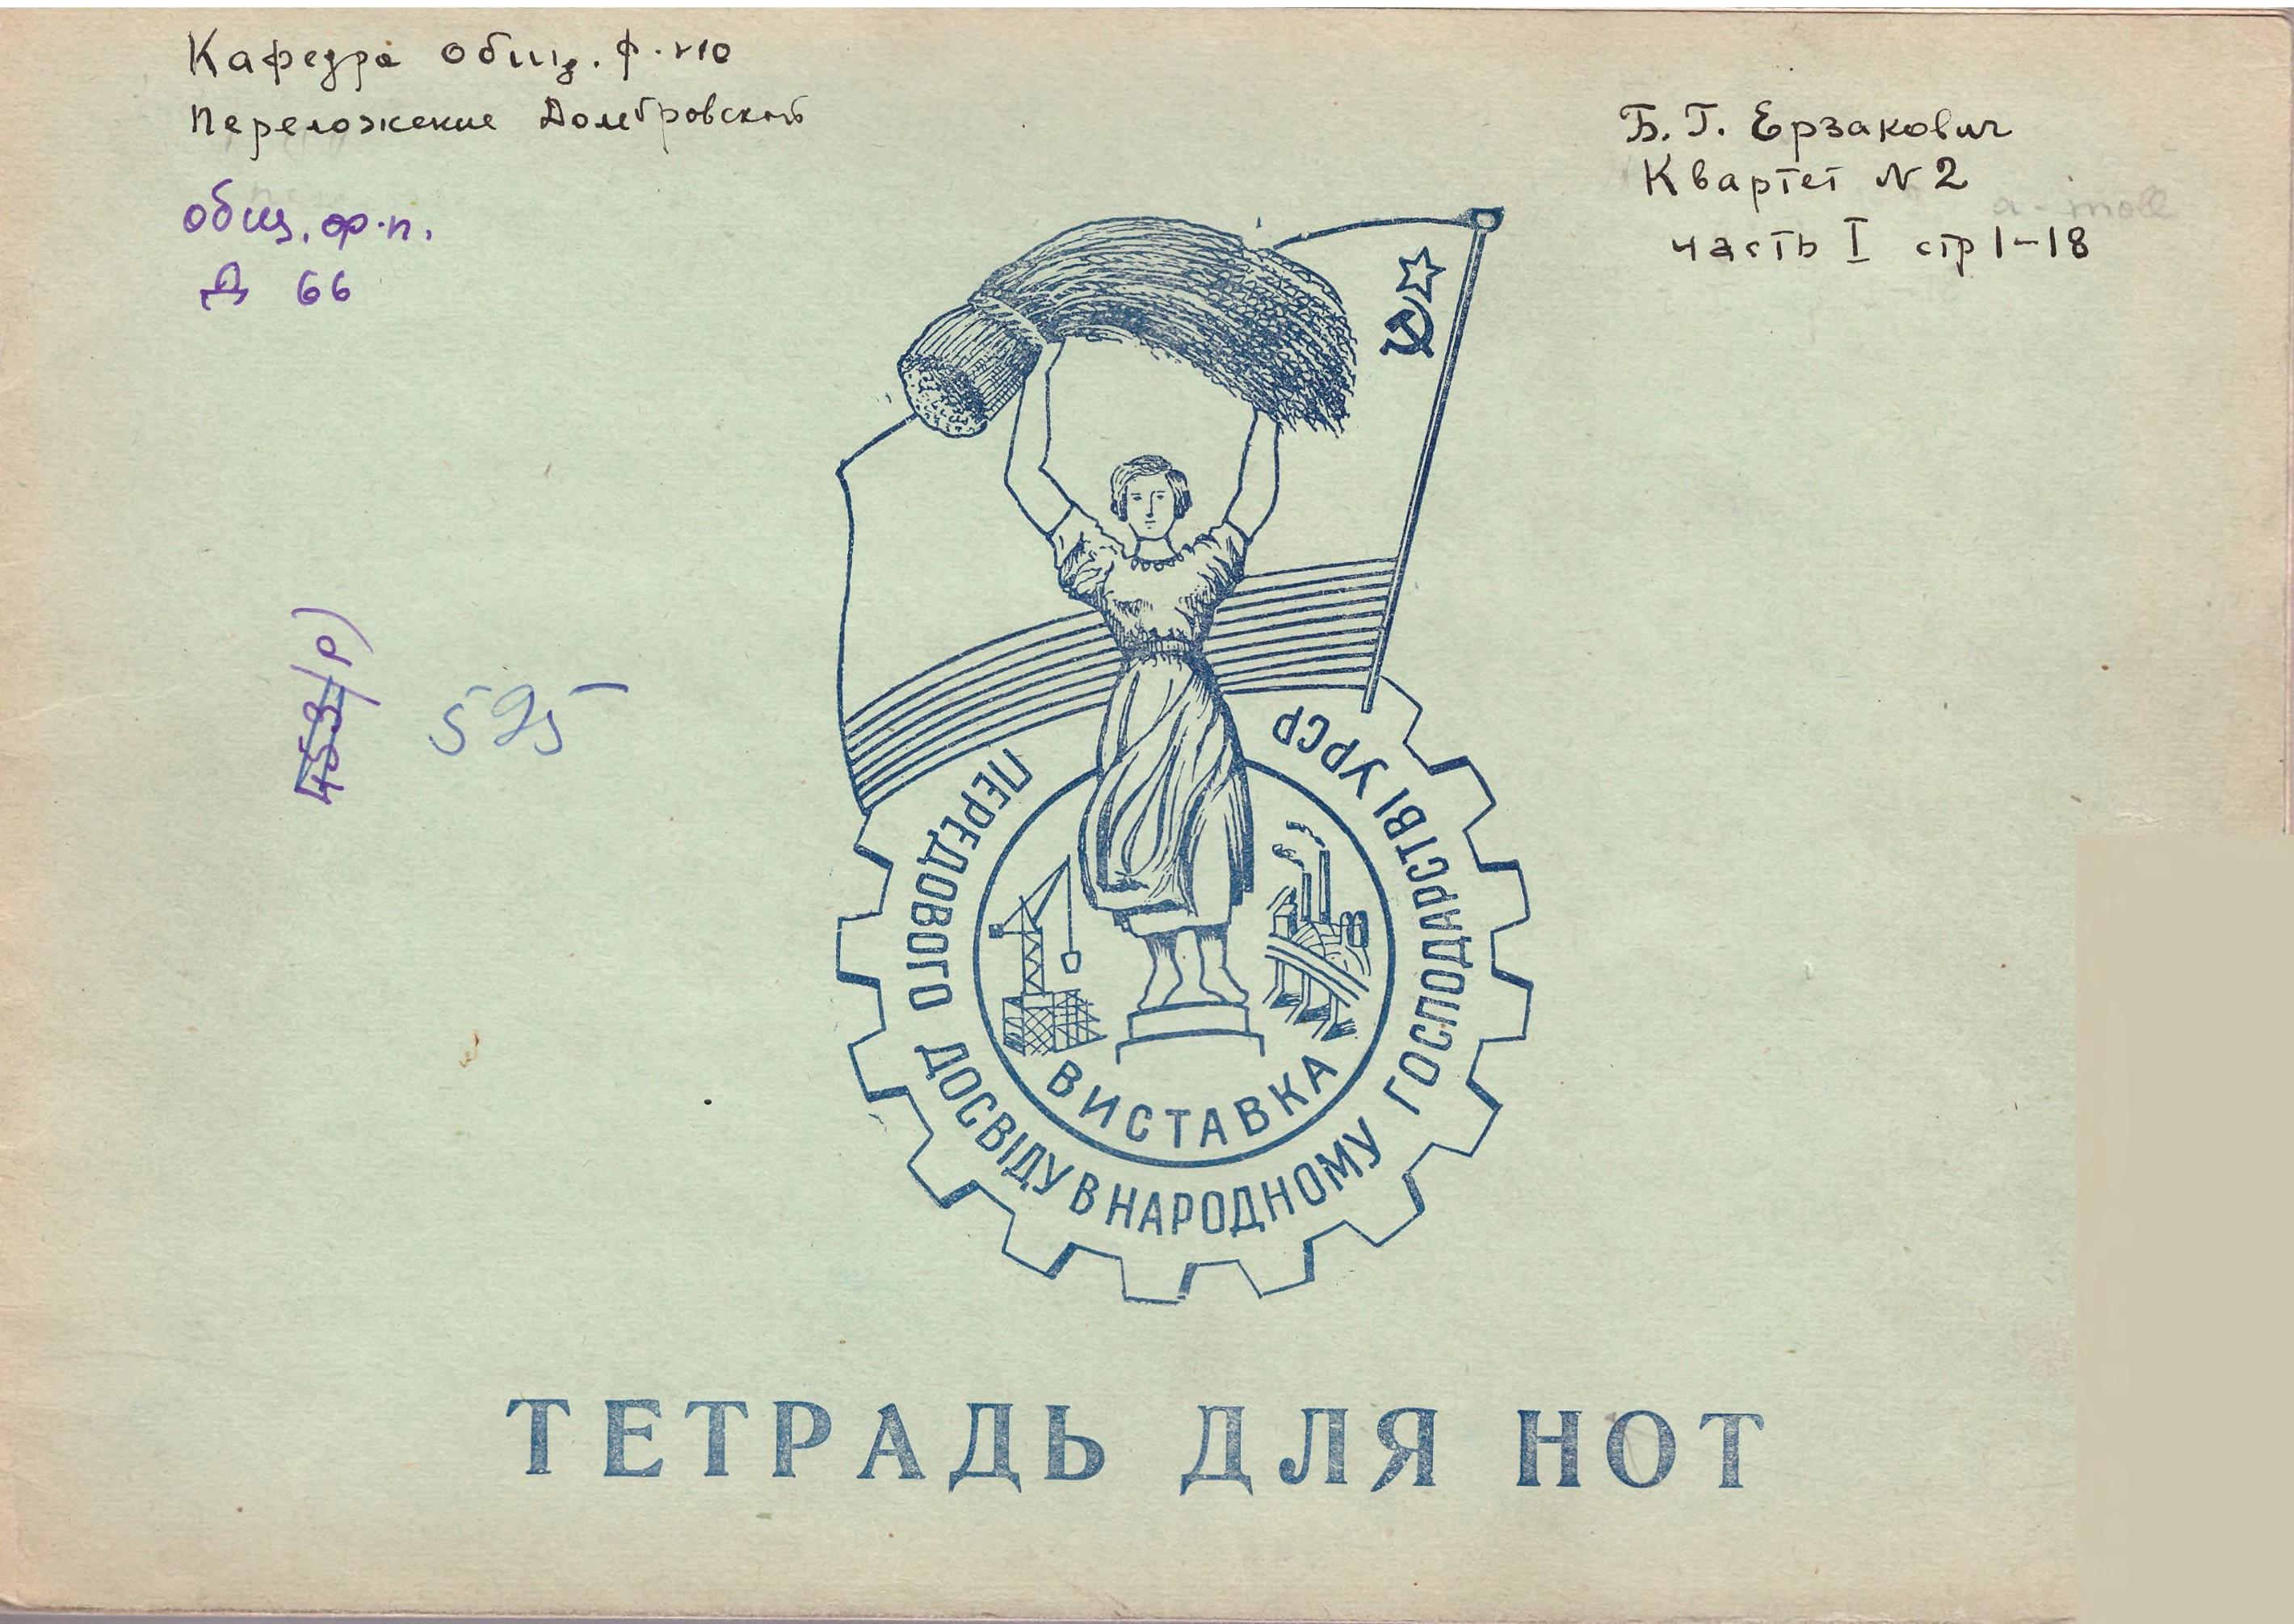 Кафедра общ. ф-но
Переложение Домбровской
общ. ф-п.
Д 66
Б. Г. Ерзакович
Квартет N 2
a-moll
часть I стр 1-18
453/р)
595
ПЕРЕДОВОГО ДОСВІДУ В НАРОДНОМУ ГОСПОДАРСТВІ УРСР
ВИСТАВКА
ТЕТРАДЬ ДЛЯ НОТ